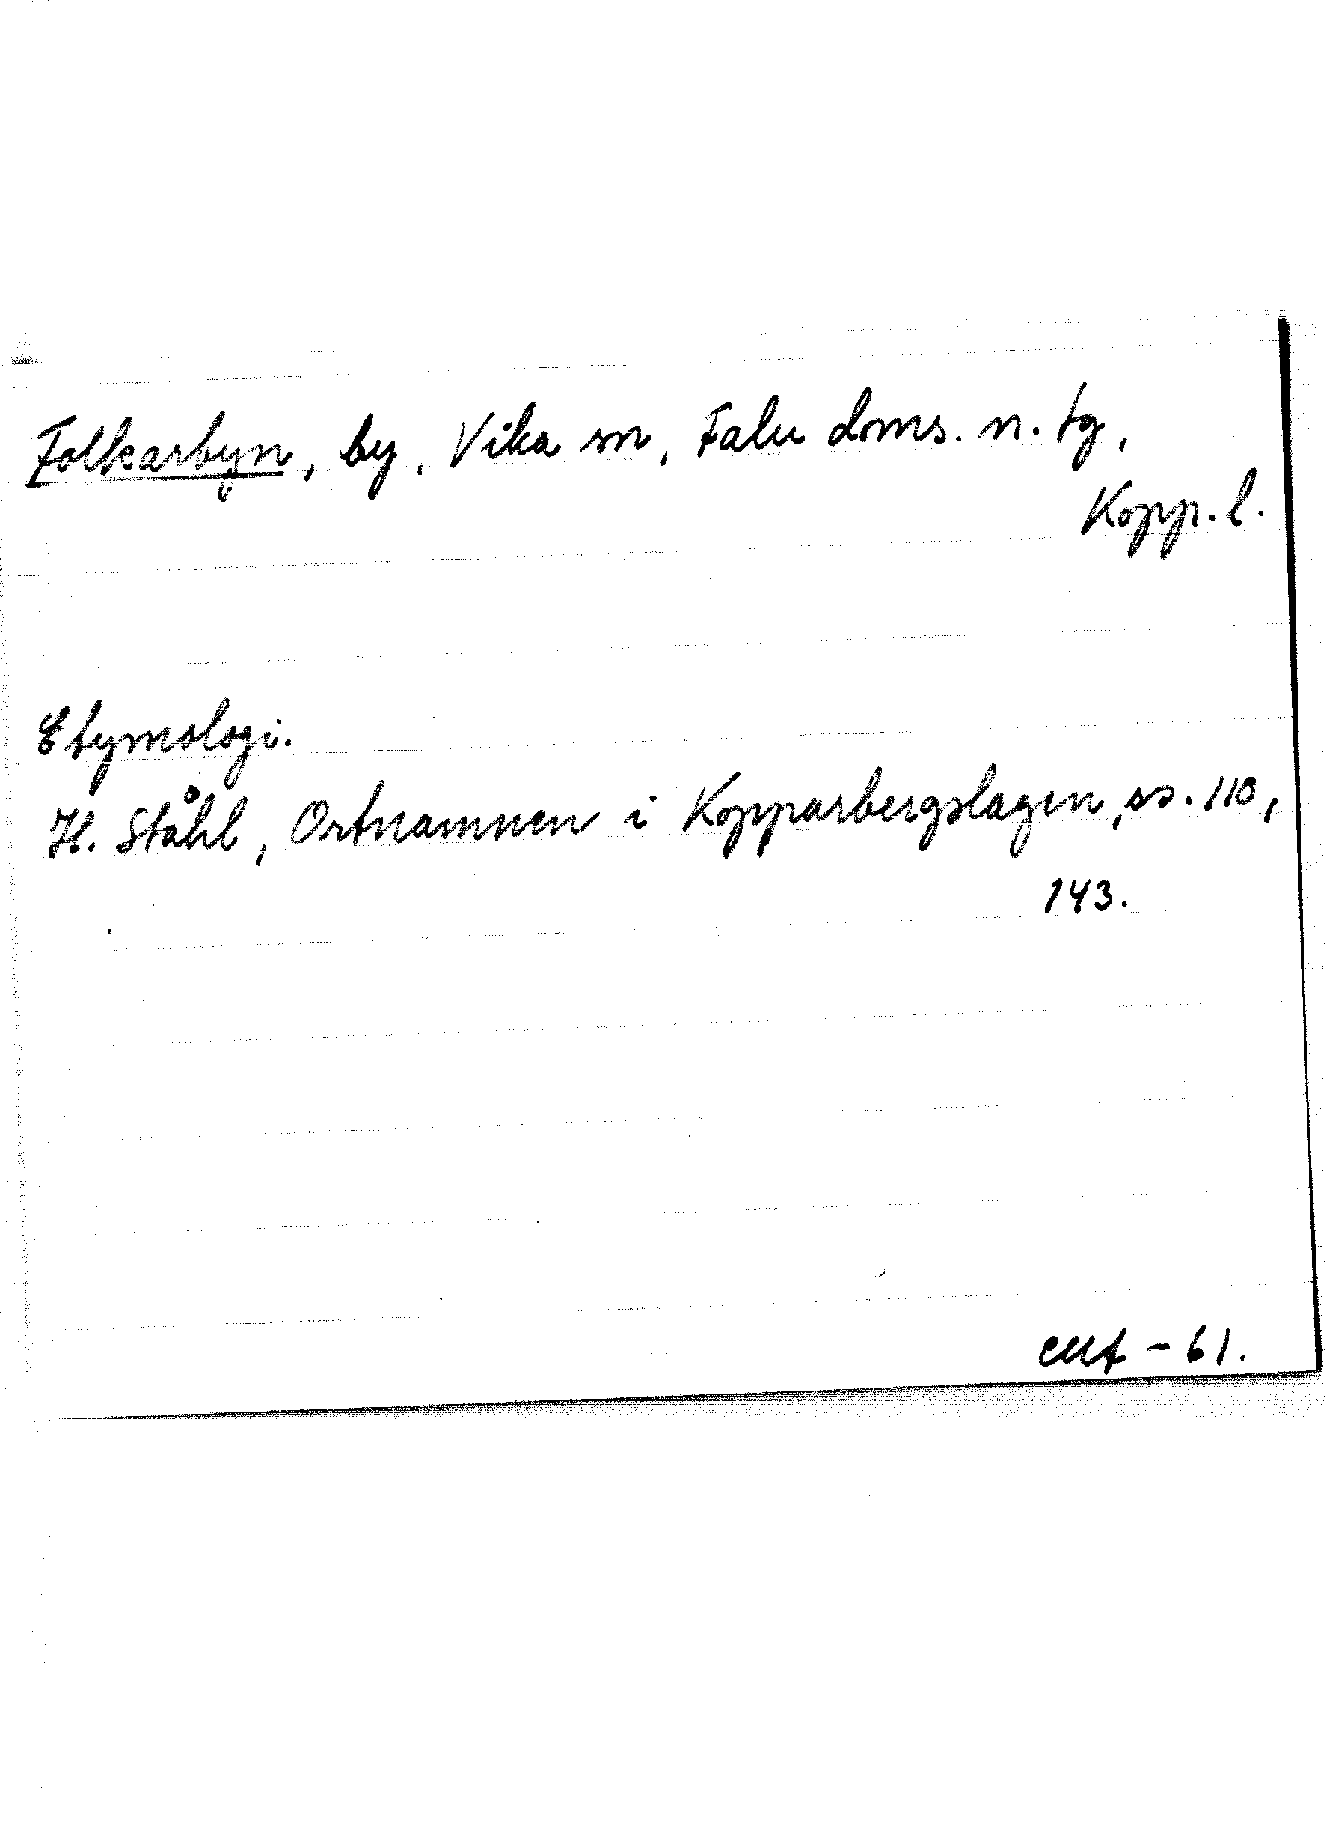 Folkarbyn, by, Vika sn, Falu doms. n. tg,
Kopp. l.
Etymologi.
H. Ståhl, Ortnamnen i Kopparbergslagen, ss. 110,
143.
- 61.